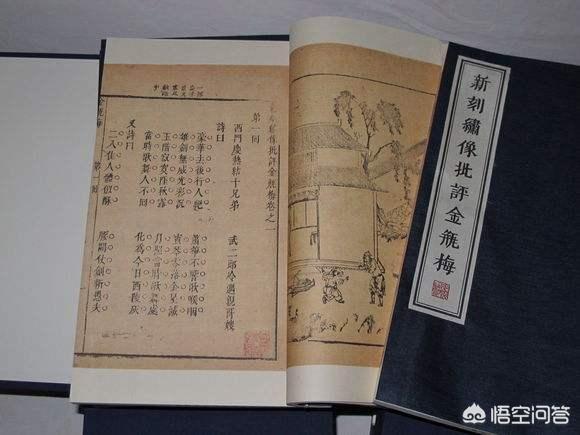 像批評金瓶梅卷之一
第一回
西門慶熱結十兄弟 武二郎冷遇親哥嫂
詩曰
豪華去後行人絕 簫箏不響歌喉咽
雄劍無威光彩沉 寶琴零落金星滅
玉階寂寞墜秋露 月照當時歌舞處
當時歌舞人不回 化為今日西陵灰
又詩曰
二八佳人體似酥 腰間仗劍斬愚夫
金瓶梅 第一回
新刻繡像批評金瓶梅
悟空问答